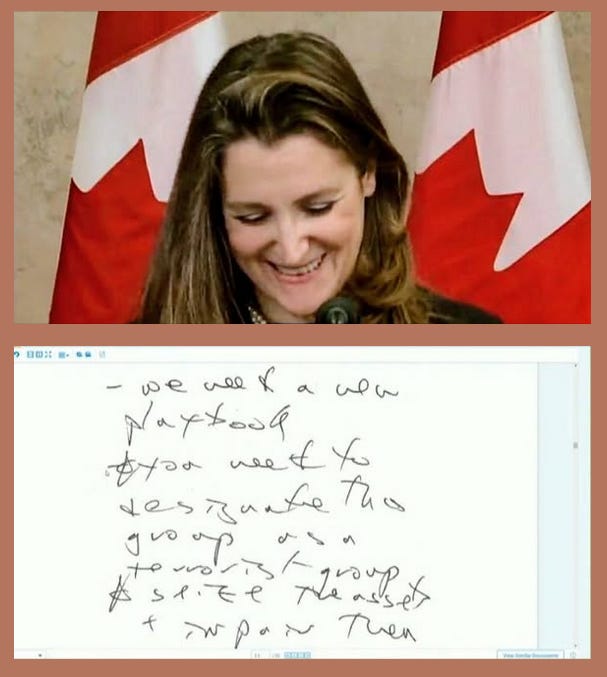 - we need a new
playbook
you need to
designate the
group as a
terrorist group
& seize the assets
+ impair them
View Similar Documents